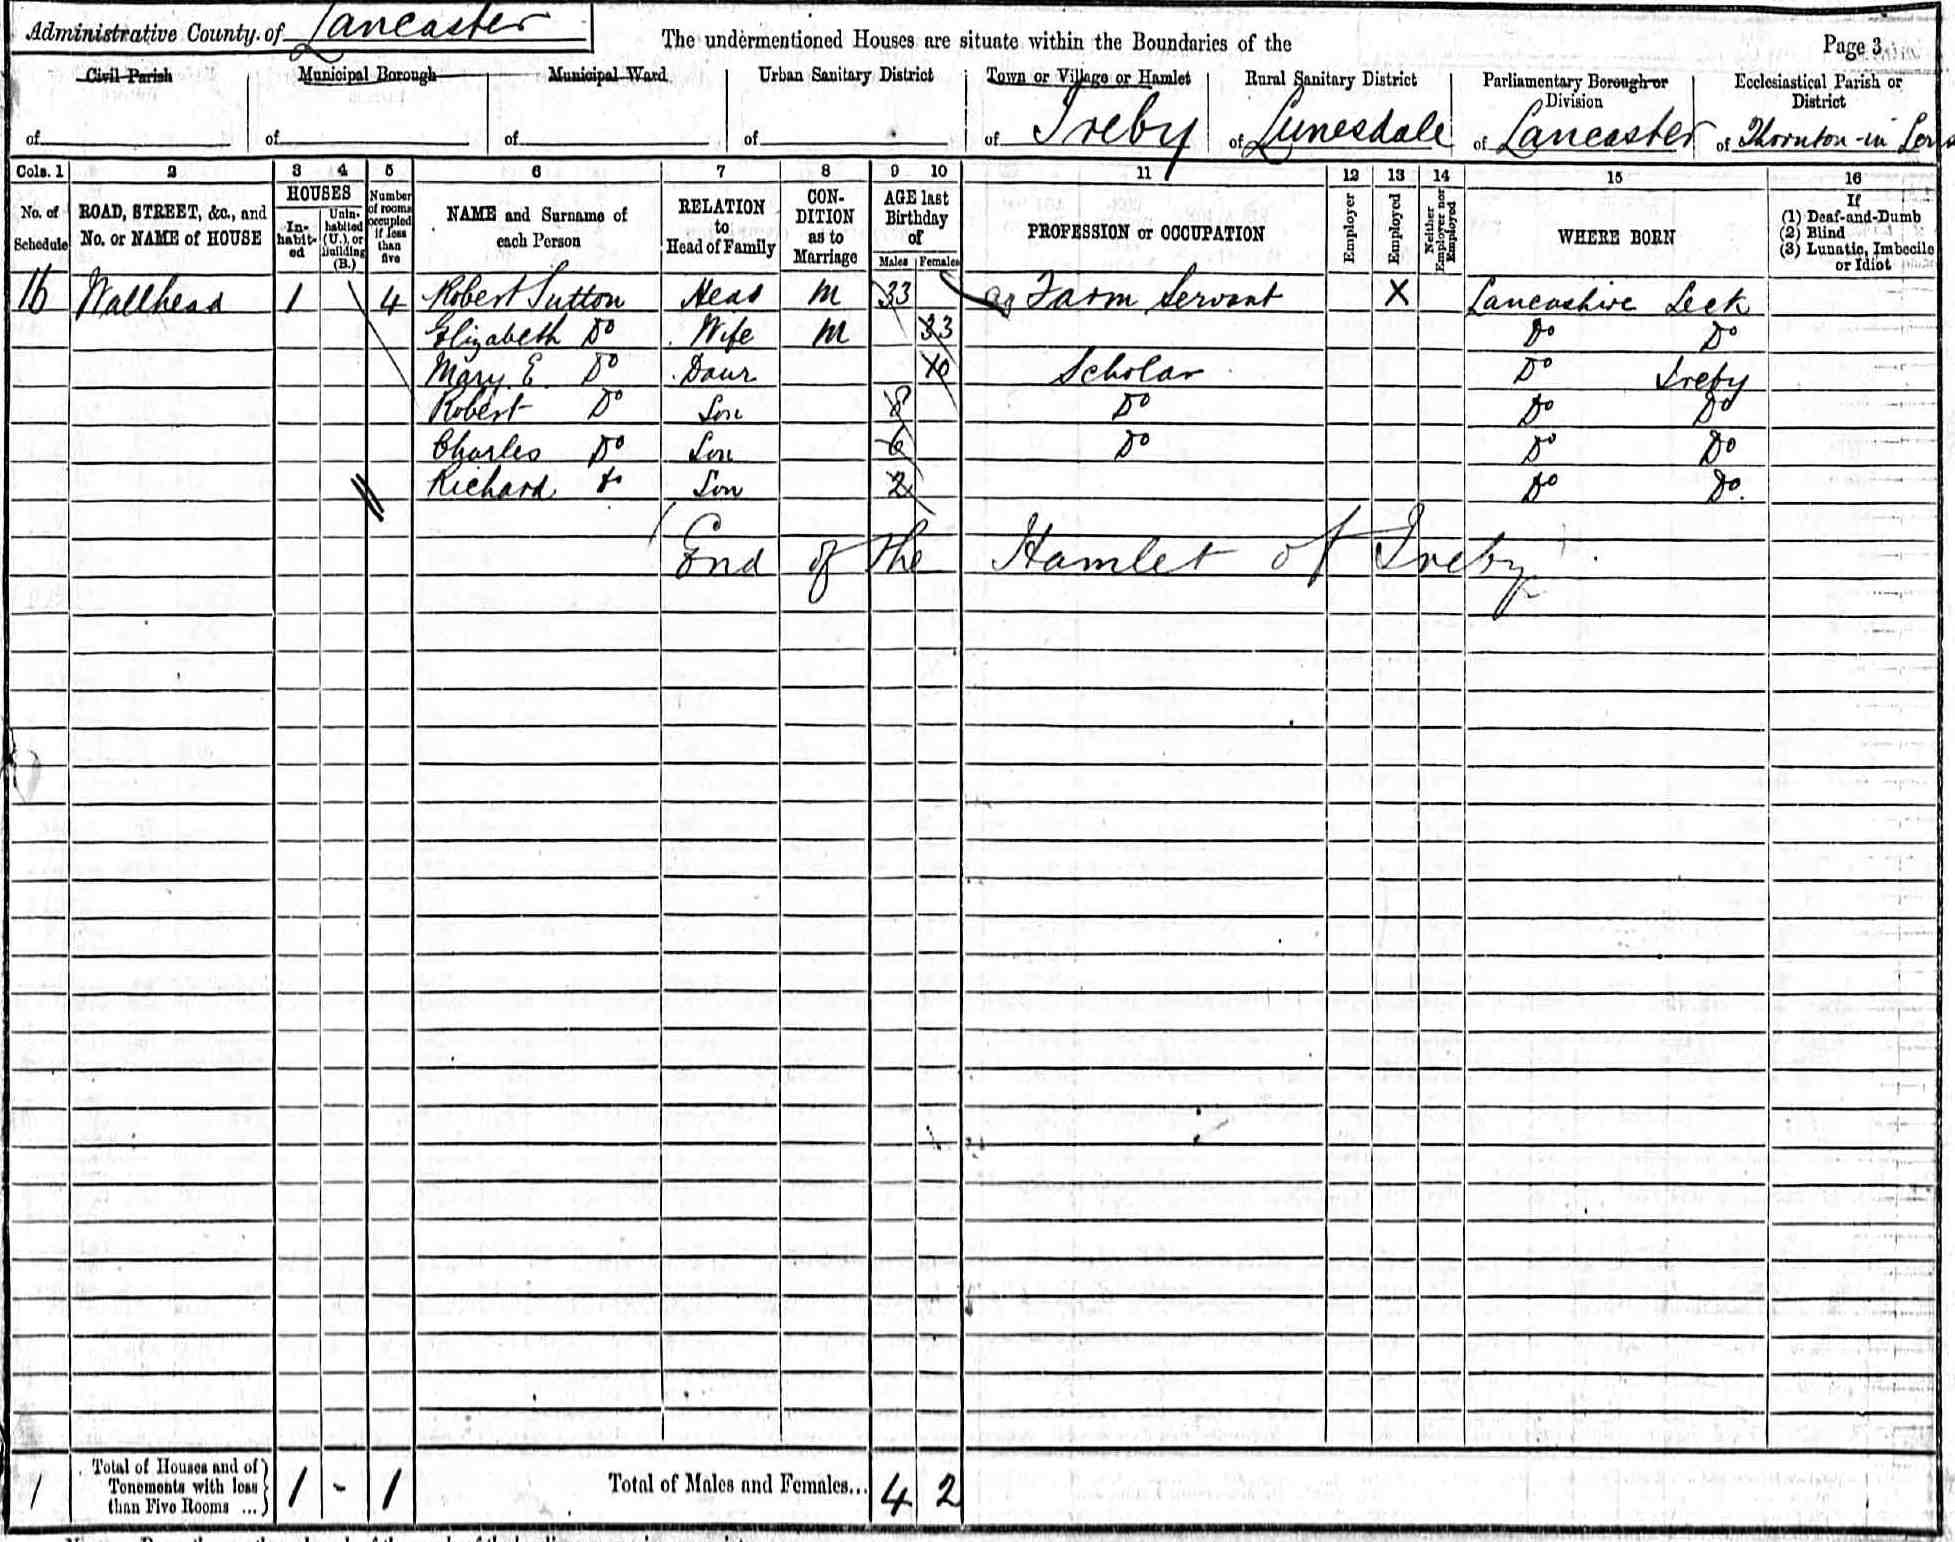 Administrative County of Lancaster
The undermentioned Houses are situate within the Boundaries of the
Page 3
Civil Parish
Municipal Borough
Municipal Ward
Urban Sanitary District
Town or Village or Hamlet
Rural Sanitary District
Parliamentary Borough or Division
Ecclesiastical Parish or District
of
of
of
of
of Ireby
of Lunesdale
of Lancaster
of Thornton-in
Cols. 1 2 3 4 5 6 7 8 9 10 11 12 13 14 15 16
No. of Schedule
ROAD, STREET, &c., and No. or NAME of HOUSE
HOUSES
In-habit-ed
Unin-habited (U.), or Building (B.)
Number of rooms occupied if less than five
NAME and Surname of each Person
RELATION to Head of Family
CON-DITION as to Marriage
AGE last Birthday of
Males Females
PROFESSION or OCCUPATION
Employer
Employed
Neither Employer nor Employed
WHERE BORN
If
(1) Deaf-and-Dumb
(2) Blind
(3) Lunatic, Imbecile or Idiot
16 Wallhead 1 4 Robert Sutton Head M 33 Ag Farm Servant X Lancashire Leck
Elizabeth Do Wife M 33 Do Do
Mary E. Do Daur 10 Scholar Do Ireby
Robert Do Son 8 Do Do Do
Charles Do Son 6 Do Do Do
Richard Do Son 2 Do Do.
End of the Hamlet of Ireby
1 Total of Houses and of Tenements with less than Five Rooms ... 1 - 1 Total of Males and Females... 4 2